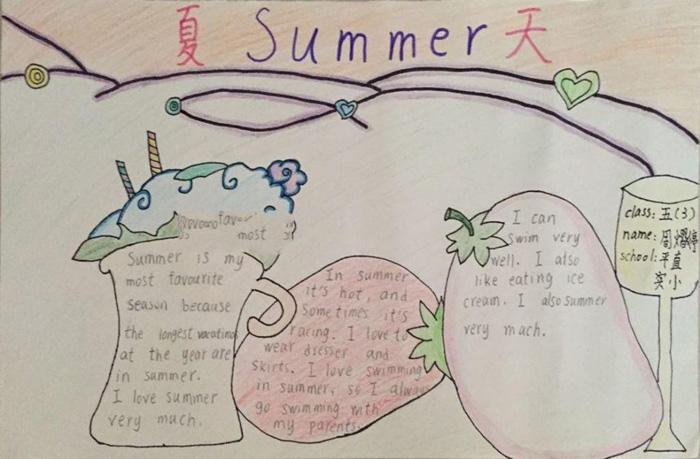 夏 Summer 天
favor
most
Summer is my
most favourite
season because
the longest vacation
at the year are
in summer.
I love summer
very much.
In summer
it's hot, and
Sometimes it's
racing. I love to
wear dresser and
skirts. I love swimming
in summer, so I always
go swimming with
my parents.
I can
swim very
well. I also
like eating ice
cream. I also summer
very much.
class: 五(3)
name: 周熠婷
school: 平直
实小